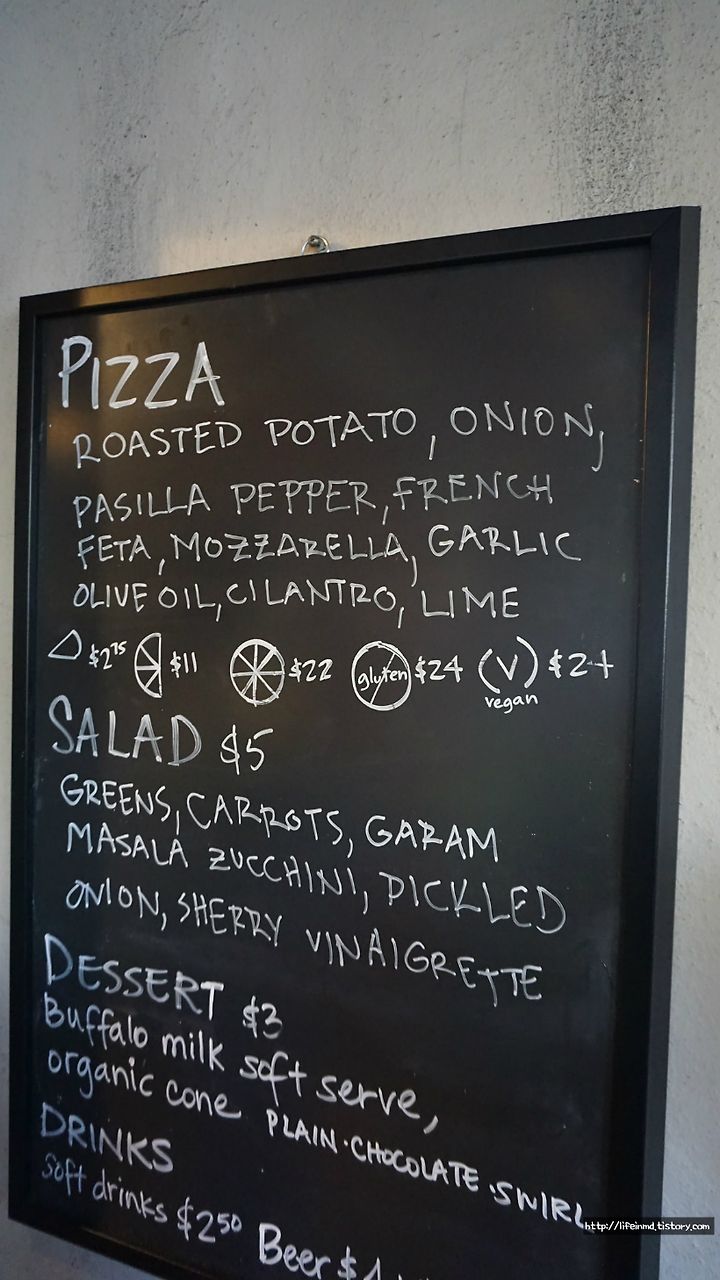 PIZZA
ROASTED POTATO, ONION,
PASILLA PEPPER, FRENCH
FETA, MOZZARELLA, GARLIC
OLIVE OIL, CILANTRO, LIME
$2.75 $11 $22 gluten $24 (V) $24
vegan
SALAD $5
GREENS, CARROTS, GARAM
MASALA ZUCCHINI, PICKLED
ONION, SHERRY VINAIGRETTE
DESSERT $3
Buffalo milk soft serve,
organic cone PLAIN·CHOCOLATE·SWIRL
DRINKS
Soft drinks $2.50 Beer $
http://lifeinmd.tistory.com